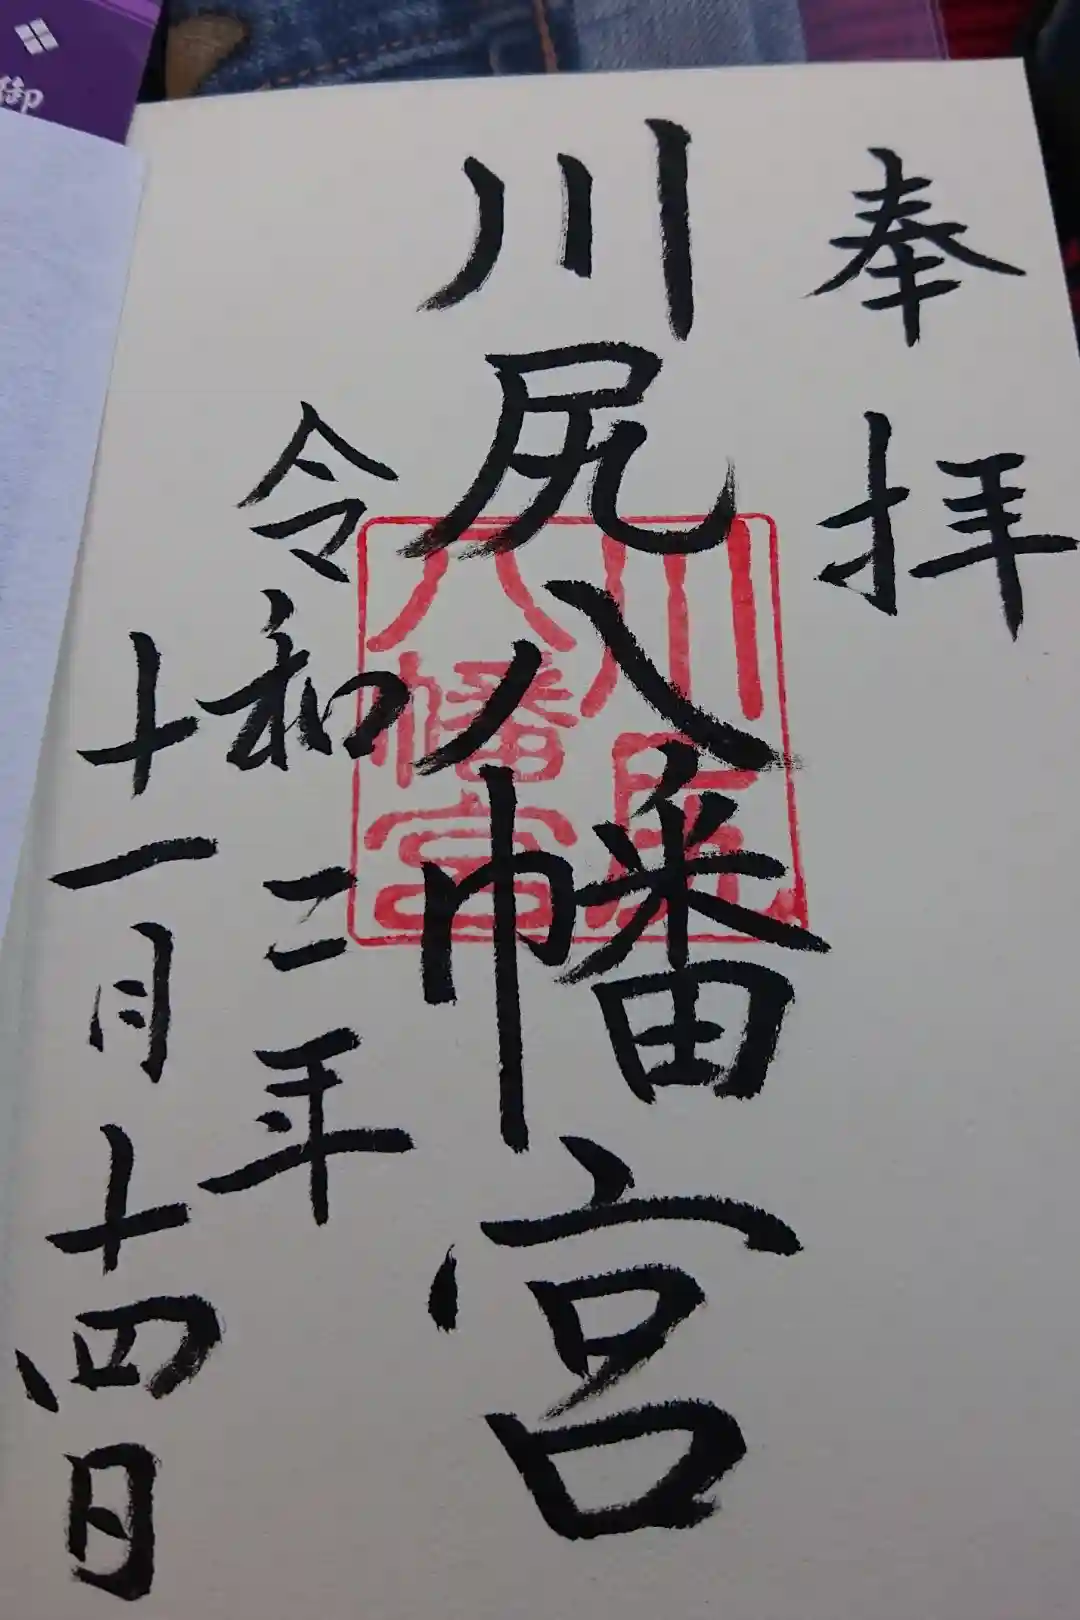 奉拝
川尻八幡宮
川尻
八幡宮
令和二年
十一月十四日
御